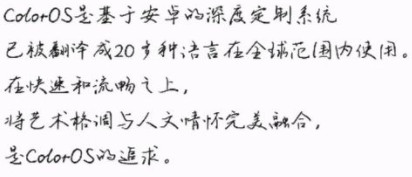 ColorOS是基于安卓的深度定制系统
已被翻译成20多种语言在全球范围内使用。
在快速和流畅之上，
将艺术格调与人文情怀完美融合，
是ColorOS的追求。